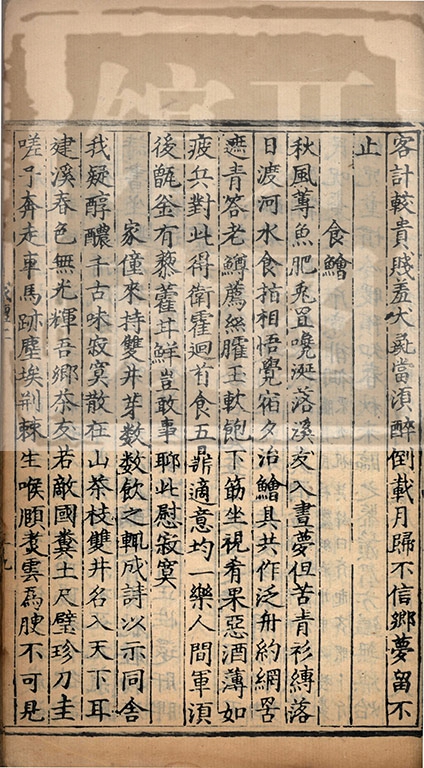 客計較貴賤羞犬彘當須醉倒載月歸不信鄉夢留不
止
食鱠
秋風蓴魚肥兎罝嚵涎落溪友入晝夢但苦青衫縛落
日渡河水食指相悟覺宿夕治鱠具共作泛舟約網罟
遮青荅老鱒薦無臛玉軟飽下筯坐視肴果惡酒薄如
疲兵對此得衛霍迴首食五鼎適意均一樂人間軍須
後甑釜有藜藿甘鮮豈敢事耶此慰寂寞
家僮來持雙井芽數數飲之輒成詩以示同舍
我疑醇醲千古味寂寞散在山茶枝雙井名入天下耳
建溪春色無光輝吾鄉茶友若敵國糞土尺璧珍刀圭
嗟予奔走車馬跡塵埃荆棘生喉頤煑雲爲腴不可見